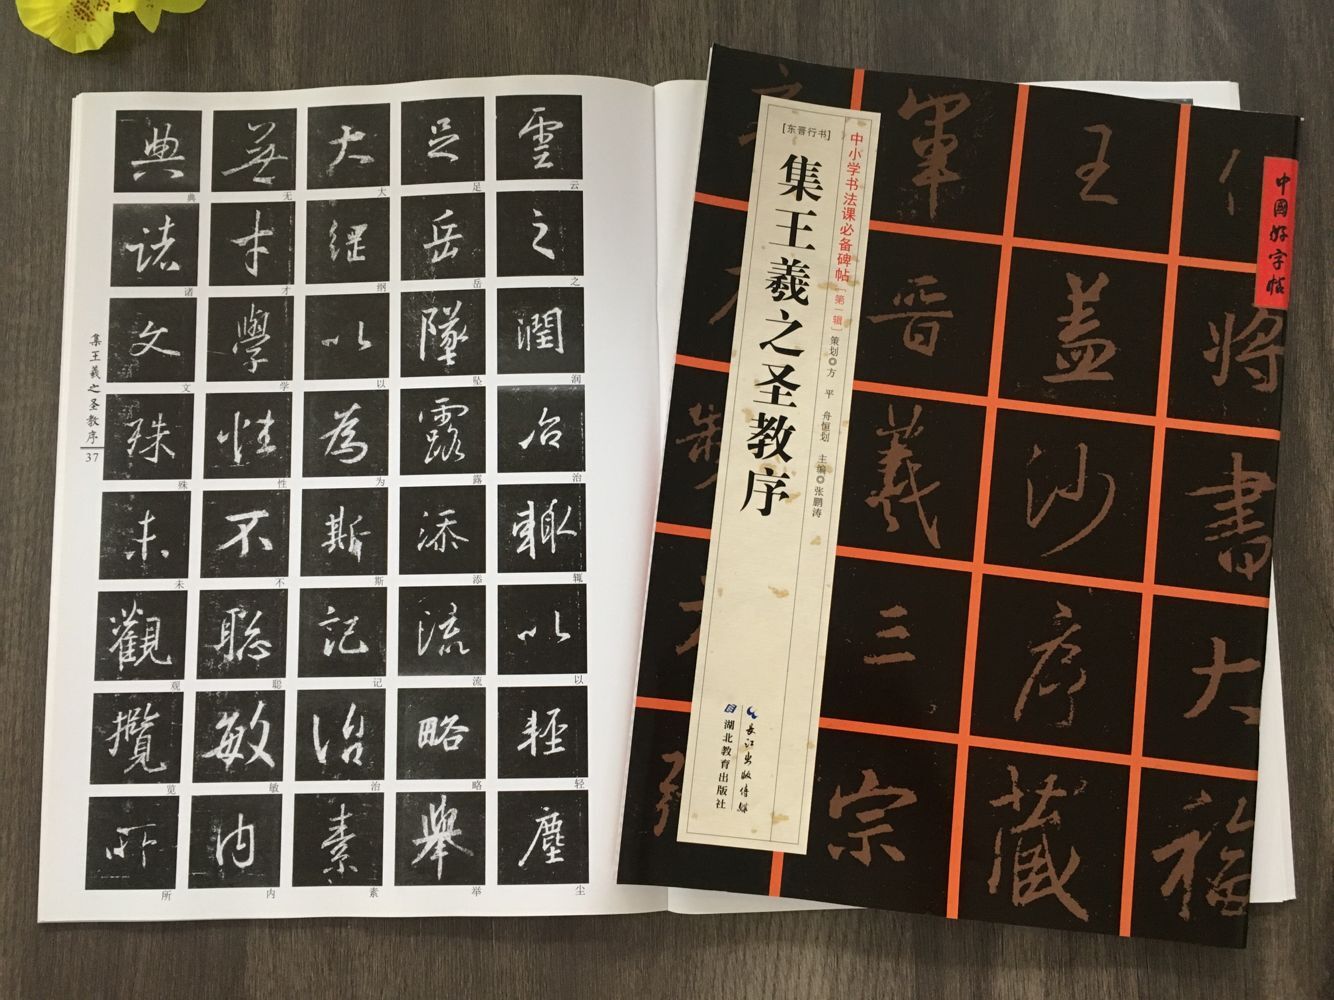 雲之潤冶輙以輕塵
云之润冶辄以轻尘
足岳墜露添流略舉
足岳坠露添流略举
大繩以為斯記治素
大纲以为斯记治素
無才學性不聡敏內
无才学性不聪敏内
典諸文殊未觀攬所
典诸文殊未观览所
集王羲之圣教序
37
中國好字帖
中小学书法课必备碑帖［第一辑］
策划◎方平 舟恒划 主编◎张鹏涛
［东晋行书］
集王羲之圣教序
长江出版传媒
湖北教育出版社
將書大福
王盖沙序藏
軍晋羲三宗